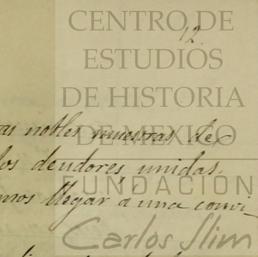 CENTRO DE
12.
ESTUDIOS
DE HISTORIA
DE MEXICO
as nobles muestras de
los deudores unidas.
FUNDACION
mos llegar á una convi-
Carlos Slim